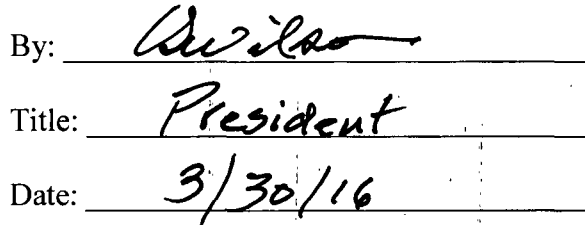 By: DWilson
Title: President
Date: 3/30/16